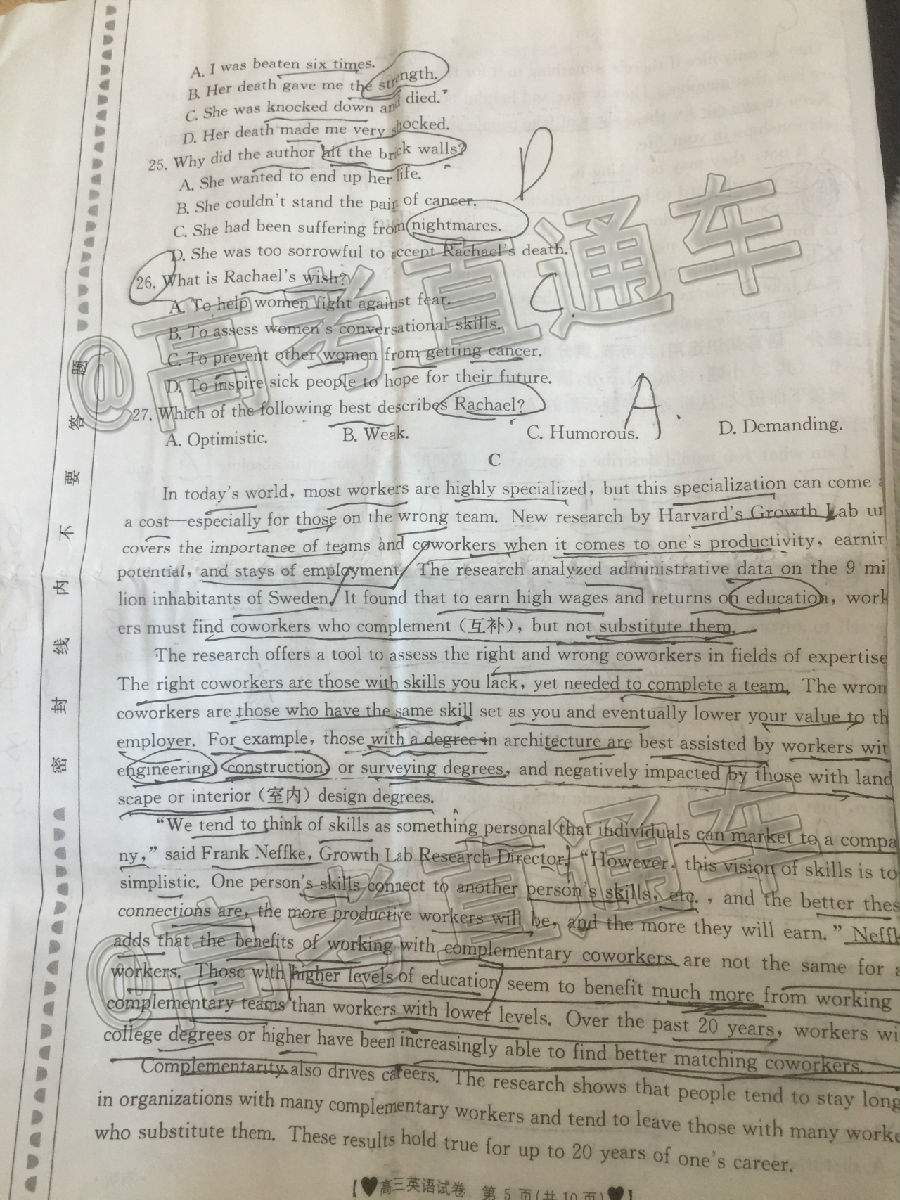 A. I was beaten six times.
B. Her death gave me the strength.
C. She was knocked down and died."
D. Her death made me very shocked.
25. Why did the author hit the brick walls?
A. She wanted to end up her life.
B. She couldn't stand the pain of cancer.
D
C. She had been suffering from nightmares.
D. She was too sorrowful to accept Rachael's death.
26. What is Rachael's wish?
A. To help women fight against fear.
C.
B. To assess women's conversational skills.
C. To prevent other women from getting cancer.
D. To inspire sick people to hope for their future.
27. Which of the following best describes Rachael?
A.
A. Optimistic. B. Weak. C. Humorous. D. Demanding.
C
In today's world, most workers are highly specialized, but this specialization can come a
a cost—especially for those on the wrong team. New research by Harvard's Growth Lab un
covers the importance of teams and coworkers when it comes to one's productivity, earnin
potential, and stays of employment. The research analyzed administrative data on the 9 mi
lion inhabitants of Sweden. It found that to earn high wages and returns on education, work
ers must find coworkers who complement (互补), but not substitute them.
The research offers a tool to assess the right and wrong coworkers in fields of expertise
The right coworkers are those with skills you lack, yet needed to complete a team. The wron
coworkers are those who have the same skill set as you and eventually lower your value to th
employer. For example, those with a degree in architecture are best assisted by workers wit
engineering, construction, or surveying degrees, and negatively impacted by those with land
scape or interior (室内) design degrees.
"We tend to think of skills as something personal that individuals can market to a compa
ny," said Frank Neffke, Growth Lab Research Director. "However, this vision of skills is to
simplistic. One person's skills connect to another person's skills, etc. , and the better thes
connections are, the more productive workers will be, and the more they will earn." Neffk
adds that the benefits of working with complementary coworkers are not the same for a
workers. Those with higher levels of education seem to benefit much more from working
complementary teams than workers with lower levels. Over the past 20 years, workers wi
college degrees or higher have been increasingly able to find better matching coworkers.
Complementarity also drives careers. The research shows that people tend to stay long
in organizations with many complementary workers and tend to leave those with many worke
who substitute them. These results hold true for up to 20 years of one's career.
【♥高三英语试卷 第 5 页(共 10 页)♥】
密 封 线 内 不 要 答 题
@高考直通车
@高考直通车